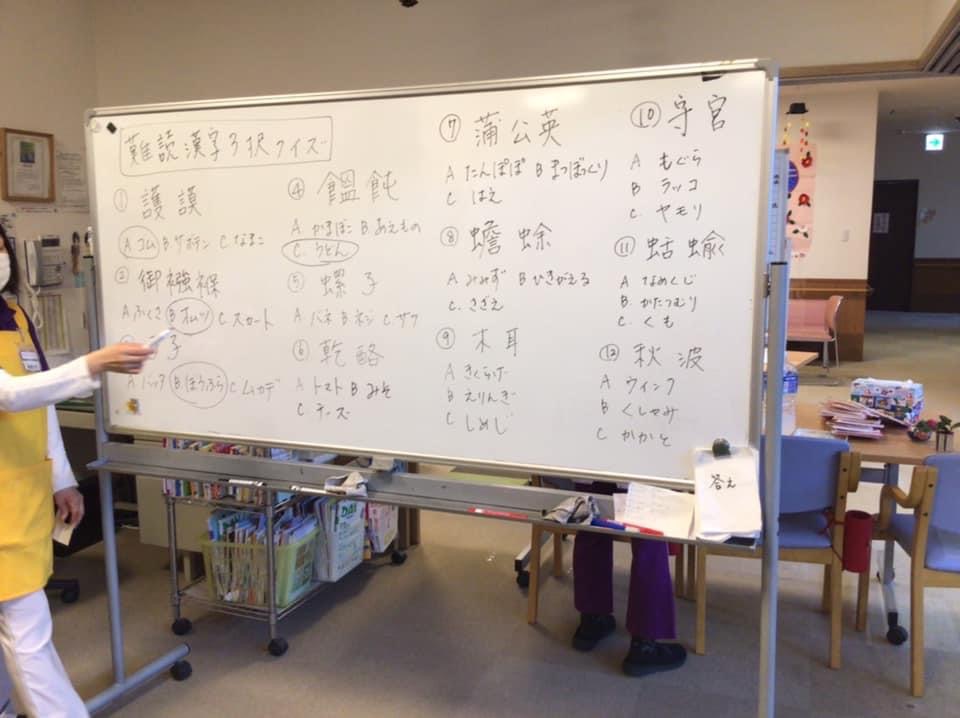 難読漢字3択クイズ
① 護謨
A ゴム B サボテン C なまこ
② 御襁褓
A ふくさ B オムツ C スカート
子
A バッタ B ぼうふら C ムカデ
④ 饂飩
A かまぼこ B あえもの
C. うどん
⑤ 螺子
A バネ B ネジ C サツ
⑥ 乾酪
A トマト B みそ
C チーズ
⑦ 蒲公英
A たんぽぽ B まつぼっくり
C はえ
⑧ 蟾蜍
A みみず B ひきがえる
C. さざえ
⑨ 木耳
A きくらげ
B えりんぎ
C しめじ
⑩ 守宮
A もぐら
B ラッコ
C. ヤモリ
⑪ 蛞蝓
A なめくじ
B. かたつむり
C. くも
⑫ 秋波
A ウィンク
B くしゃみ
C かかと
答え